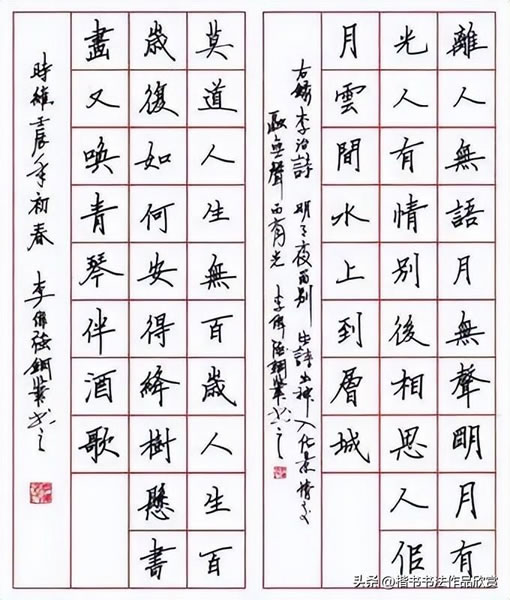 離人無語月無聲明月有
光人有情別後相思人佀
月雲間水上到層城
右錄李冶詩 明月夜留別 此詩出神入化景情交
融無聲而有光 李偉強鋼筆書之
莫道人生無百歲人生百
歲復如何安得絳樹懸書
畫又喚青琴伴酒歌
時維壬辰年初春 李偉強鋼筆書之
头条 @楷书书法作品欣赏